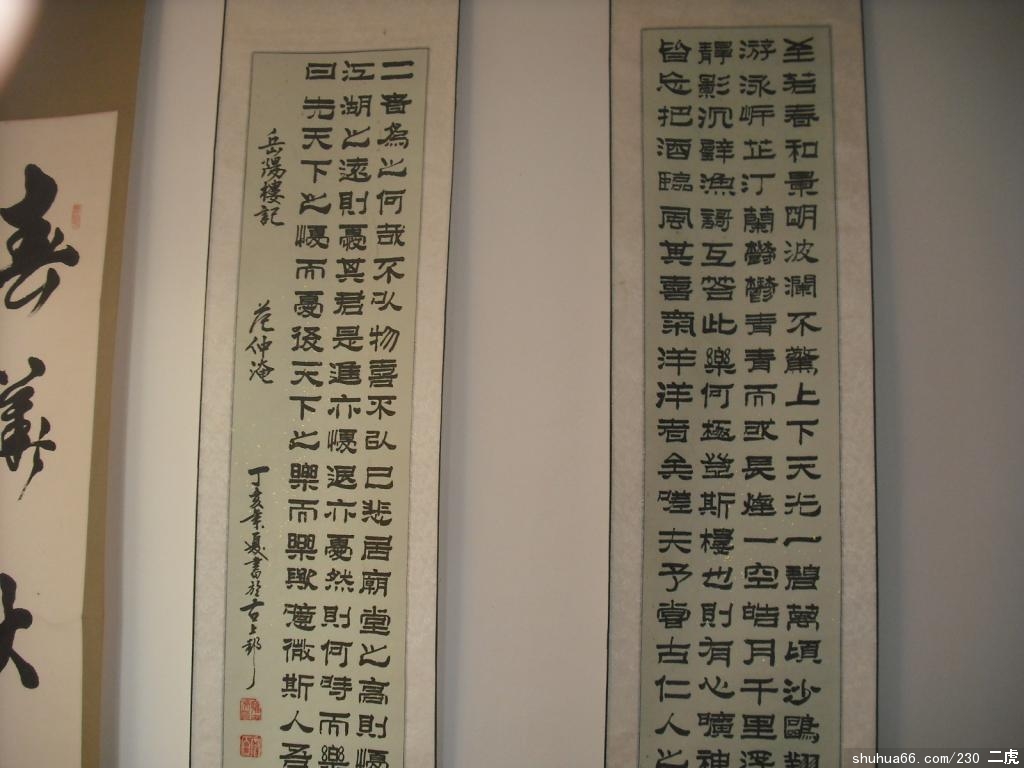 至若春和景明波瀾不驚上下天光一碧萬頃沙鷗翔
游泳岸芷汀蘭鬱鬱青青而或長煙一空皓月千里
靜影沉璧漁謌互答此樂何極登斯樓也則有心曠神
皆忘把酒臨風其喜氣洋洋者矣嗟夫予嘗古仁人之
二者為之何哉不以物喜不以己悲居廟堂之高則懮
江湖之遠則憂其君是進亦懮退亦憂然則何時而樂
曰先天下之懮而憂後天下之樂而樂歟噫微斯人吾
岳陽樓記 范仲淹
丁亥年夏書於古上邽
春華
shuhua66.com/230 二虎